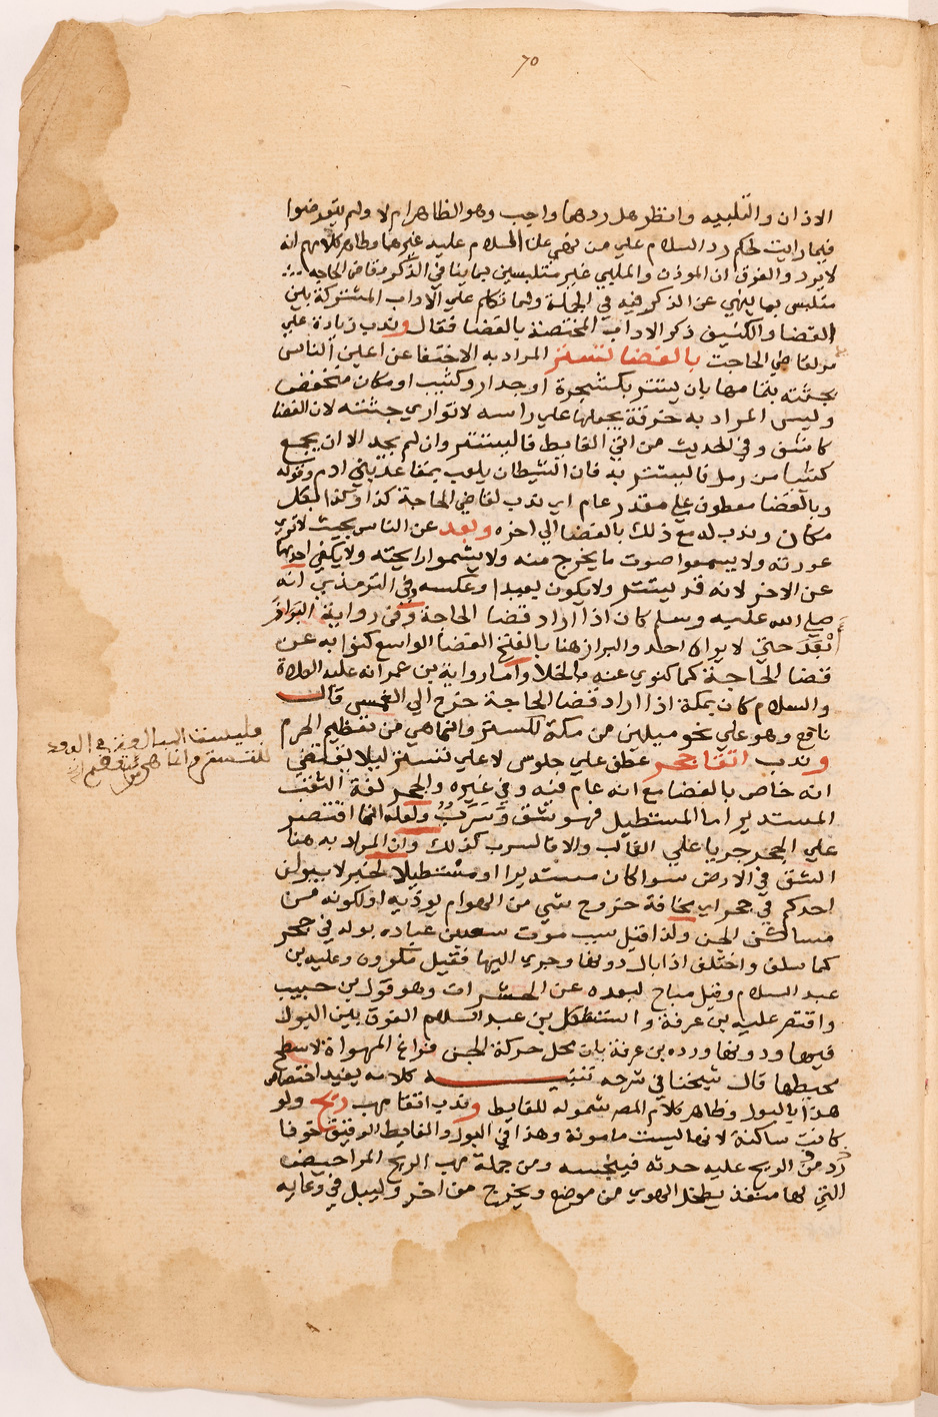 70
الاذان والتلبيه وانظر هل ردهما واجب وهو الظاهر ام لا ولم يتعرضوا
فيما رايت لحكم رد السلام علي من نهي عن السلام عليه غيرهما وظاهر كلامهم انه
لا يرد والفرق ان الموذن والملبي غير متلبسين بما ينافي الذكر وقاضي الحاجه
متلبس بما ينهي عن الذكر فيه في الجملة ولما تكلم علي الاداب المشتركة بين
القضا والكنيف ذكر الاداب المختصة بالفضا فقال وندب زيادة علي
مر لقاضي الحاجت بالفضا تستر المراد به الاختفا عن اعلين الناس
بجثته بتمامها بان يستتر بكشجرة او جدار وكثيب او مكان منخفض
وليس المراد به خرقة يجعلها علي راسه لا تواري جثته لان الفضا
كاشف وفي الحديث من اتي الغايط فاليستتر وان لم يجد الا ان يجمع
كثيبا من رمل فاليستتر به فان الشيطان يلعب بمقاعد بني ادم وقوله
وبالفضا معطوف علي مقدر عام اي ندب لقاضي الحاجة كذا وكذا بكل
مكان وندب له مع ذلك بالفضا الي اخره وبعد عن الناس بحيث لا تري
عورته ولا يسمعوا صوت ما يخرج منه ولا يشموا رايحته ولا يكفي احدهما
عن الاخر لانه قد يستتر ولا يكون بعيدا وعكسه وفي الترمذي انه
صلي الله عليه وسلم كان اذا اراد قضا الحاجة وفي رواية البراز
ابْعَدَ حتي لا يراه احد والبراز هنا بالفتح الفضا الواسع كنوا به عن
قضا الحاجة كما كنوي عنه بالخلا واما رواية بن عمر انه عليه الصلاة
والسلام كان بمكة اذا اراد قضا الحاجة خرج الي المغمس قال
نافع وهو علي نحو ميلين من مكة للستر وانما هي من تعظيم الحرم
وندب اتقا جحر عطف علي جلوس لا علي تستر ليلا يقتضي
انه خاص بالفضا مع انه عام فيه وفي غيره والجحر لغة الثقب
المستدير اما المستطيل فهو شق وَسَرَبٌ ولعله انما اقتصر
علي الجحر جريا علي الغالب والا فالسرب كذلك وان المراد به هنا
الشق في الارض سوا كان مستديرا او مستطيلا لخبر لا يبولن
احدكم في جحر اي مخافة خروج شي من الهوام يوذيه او لكونه من
مساكن الجن ولذا قيل سبب موت سعد بن عباده بوله في جحر
كما سلف واختلف اذا بال دونها وجري اليها فقيل مكروه وعليه بن
عبد السلام وقيل مباح لبعده عن الحشرات وهو قول بن حبيب
واقتصر عليه بن عرفة واستشكل بن عبد السلام الفرق بين البول
فيها ودونها ورده بن عرفة بان محل حركة الجن فراغ المهواة لا سطح
محيطها قال شيخنا في شرحه تنبيه كلامه يفيد اختصاص
هذا بالبول وظاهر كلام المص شموله للغايط وندب اتقا مهب ريح ولو
كانت ساكنة لانها ليست مامونة وهذا في البول والغايط الرقيق خوفا
رد من الريح عليه حدثه فينجسه ومن جملة مهب الريح المراحيض
التي لها منفذ يدخل الهوي من موضع ويخرج من اخر وليبل في وعايه
وليست المبالغة في البعد
للتستر وانما هي من تعظيم الحرم